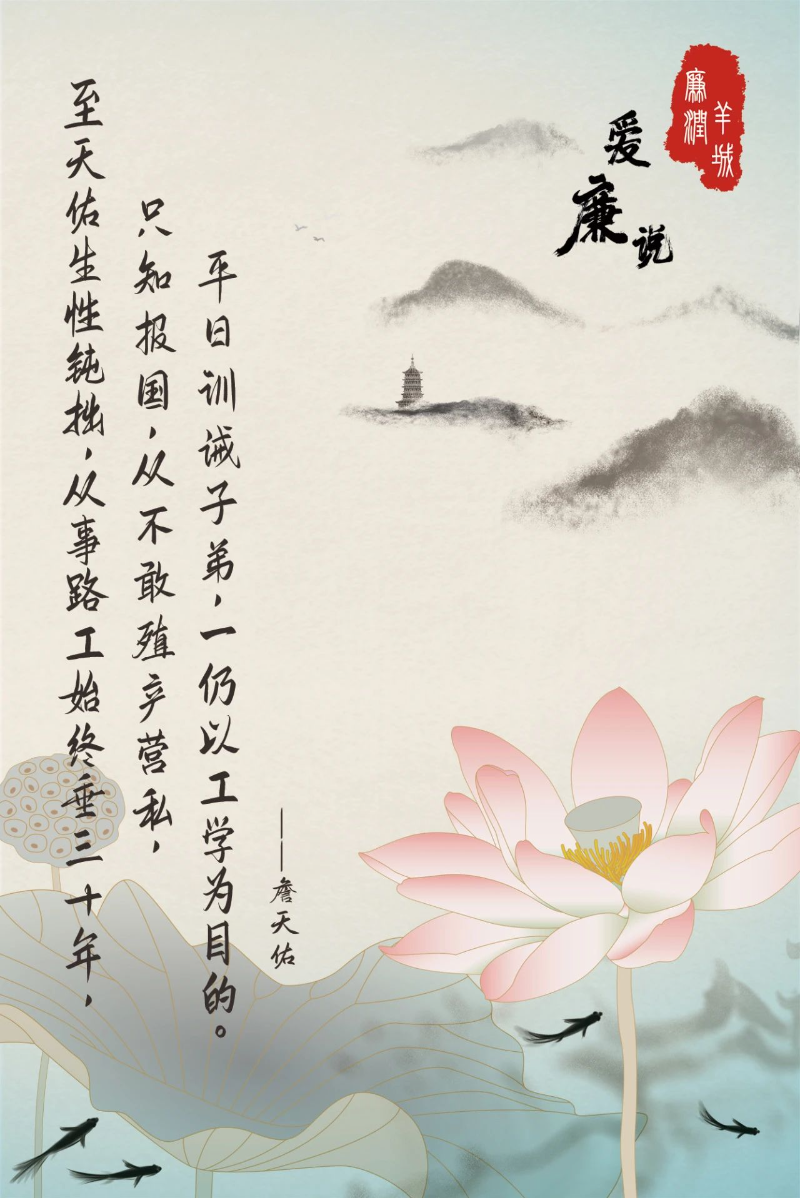 廉潤
羊城
爱廉说
至天佑生性钝拙，从事路工始终垂三十年，
只知报国，从不敢殖产营私，
平日训诫子弟，一仍以工学为目的。
——詹天佑